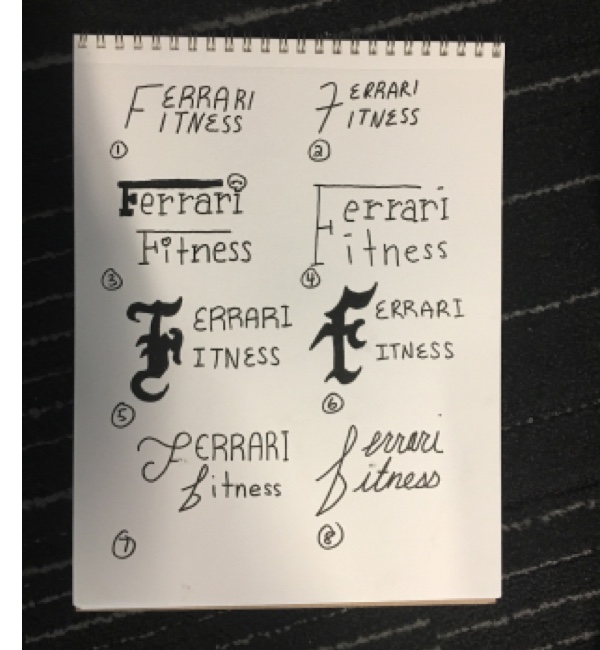 FERRARI
ITNESS
1
FERRARI
ITNESS
2
Ferrari
Fitness
3
Ferrari
itness
4
FERRARI
ITNESS
5
FERRARI
ITNESS
6
FERRARI
fitness
7
ferrari
itness
8